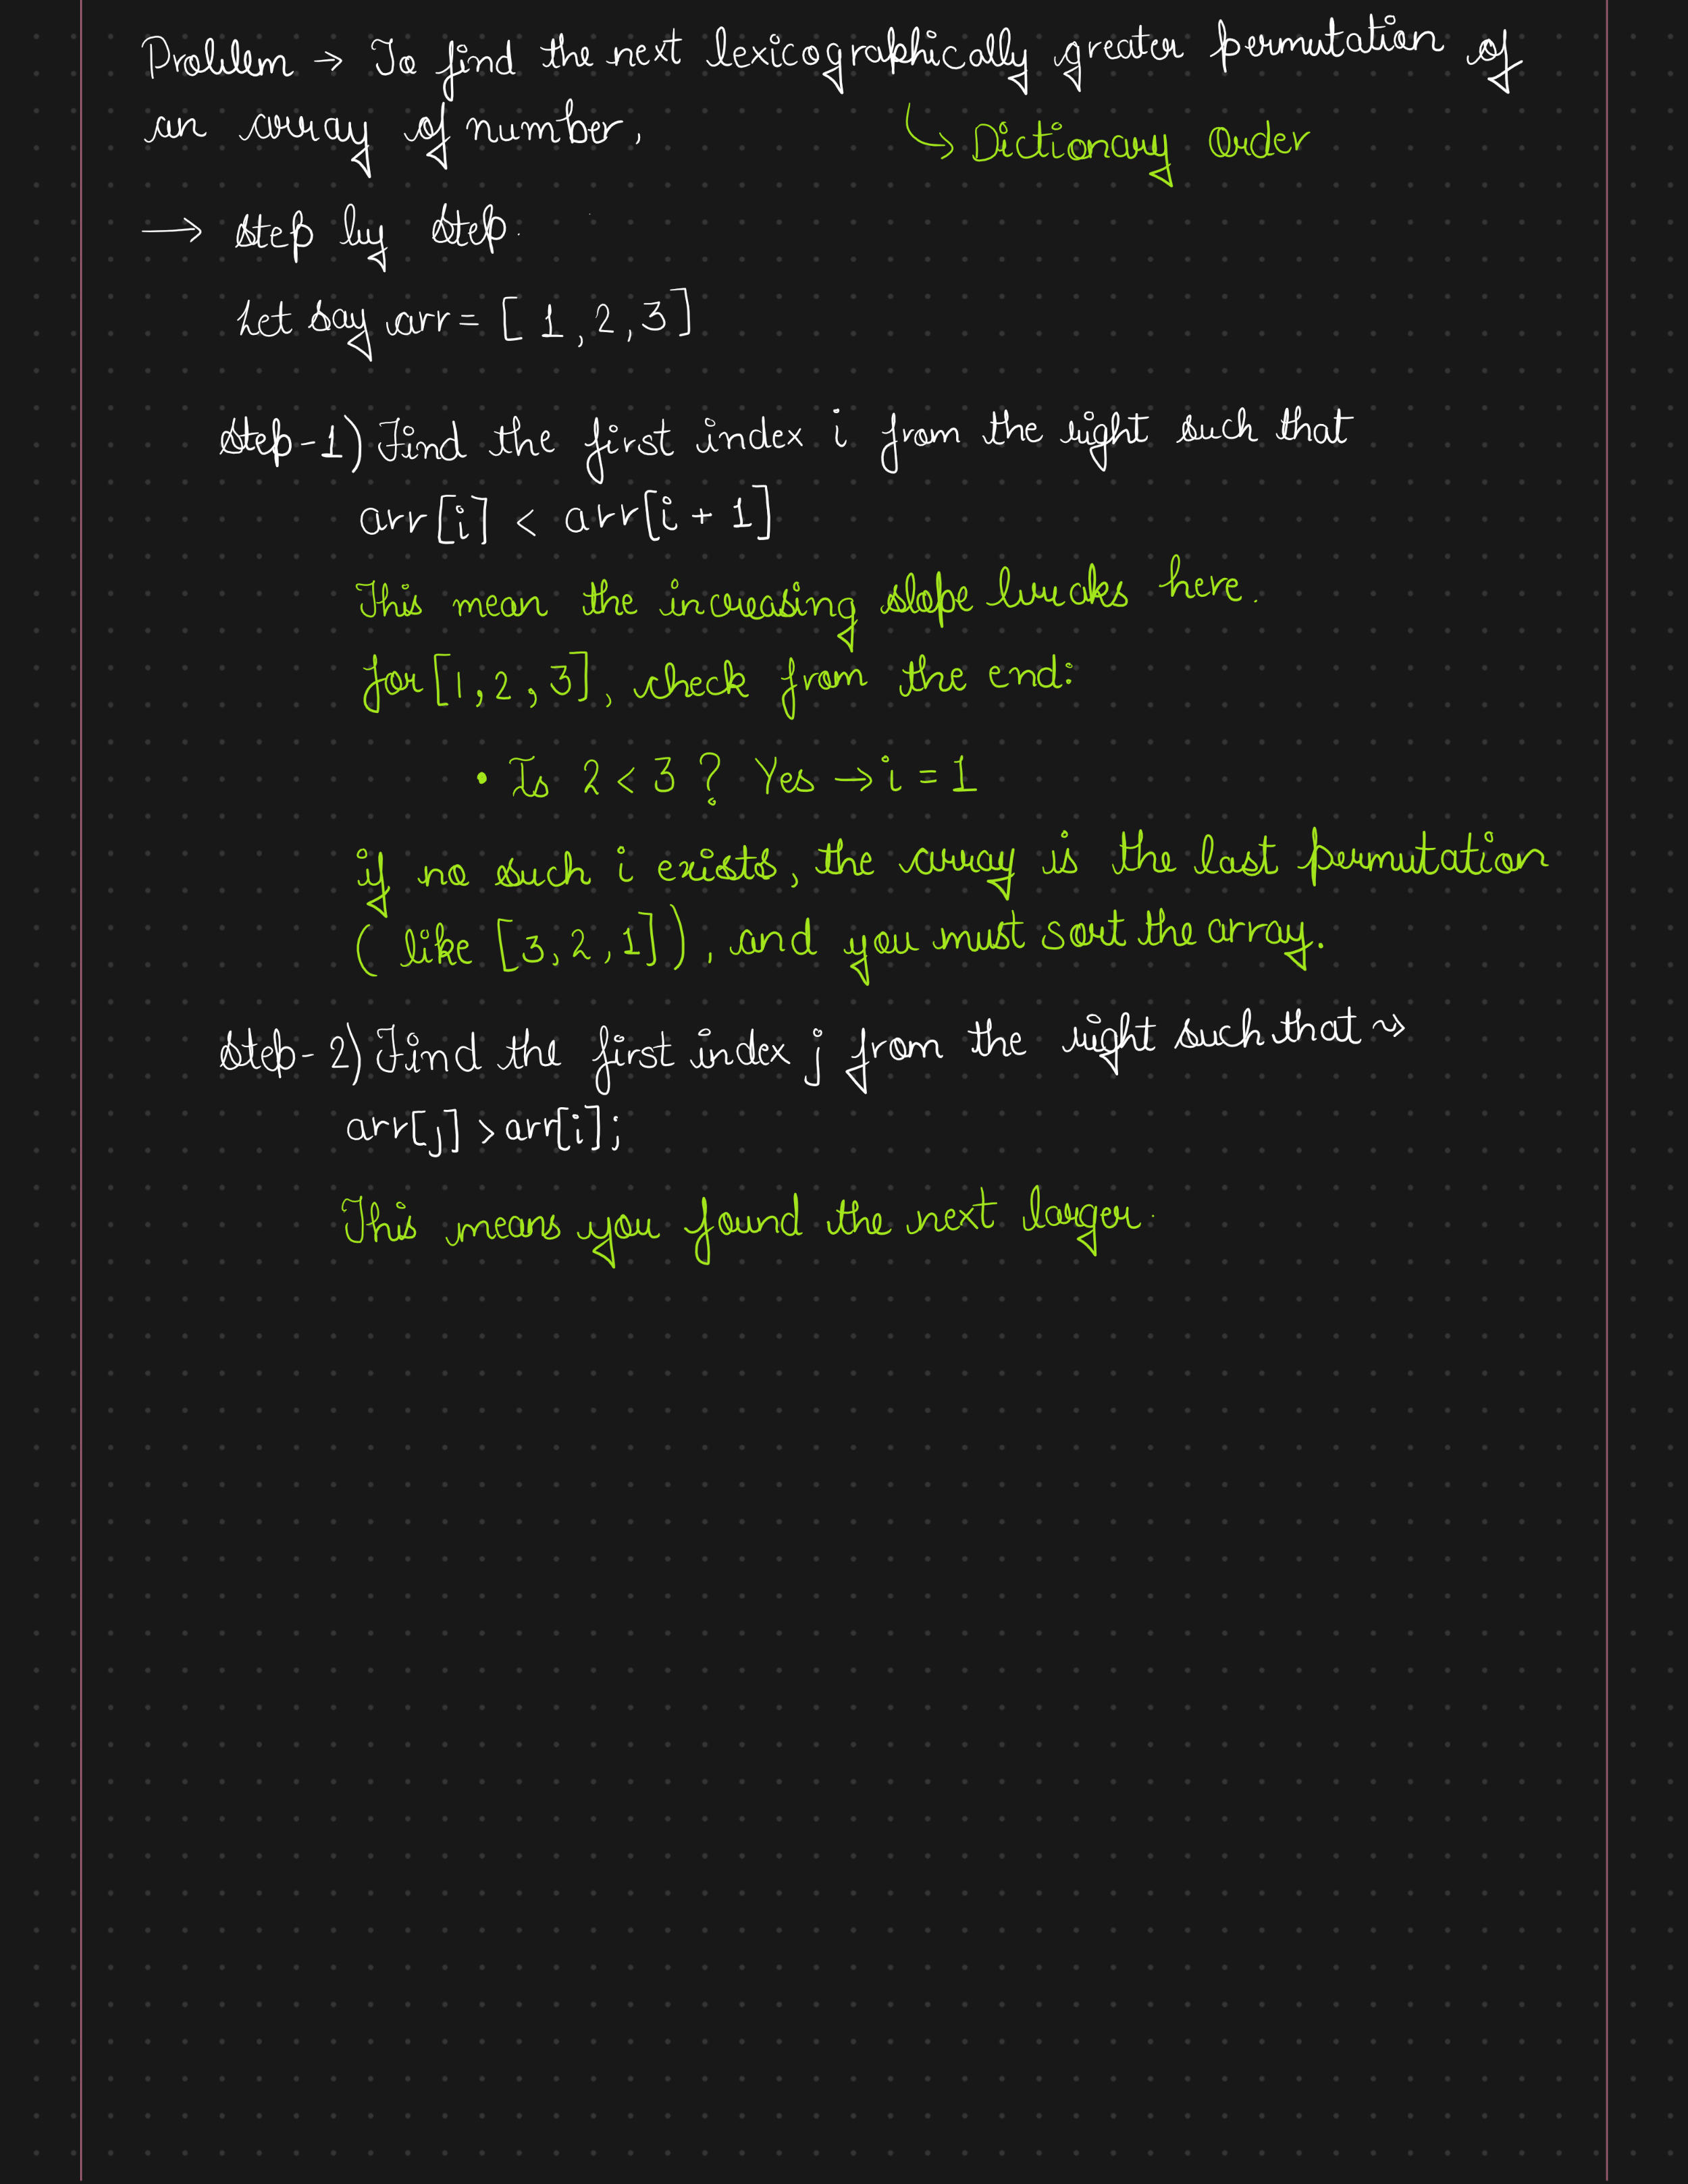 Problem → To find the next lexicographically greater permutation of
an array of number,
↳ Dictionary Order
→ Step by Step.
Let say arr = [ 1, 2, 3]
Step-1) Find the first index i from the right such that
arr[i] < arr[i + 1]
This mean the increasing slope breaks here.
for [1, 2, 3], check from the end:
• Is 2 < 3 ? Yes → i = 1
if no such i exists, the array is the last permutation
( like [3, 2, 1]), and you must sort the array.
Step-2) Find the first index j from the right such that ⤳
arr[j] > arr[i];
This means you found the next larger.